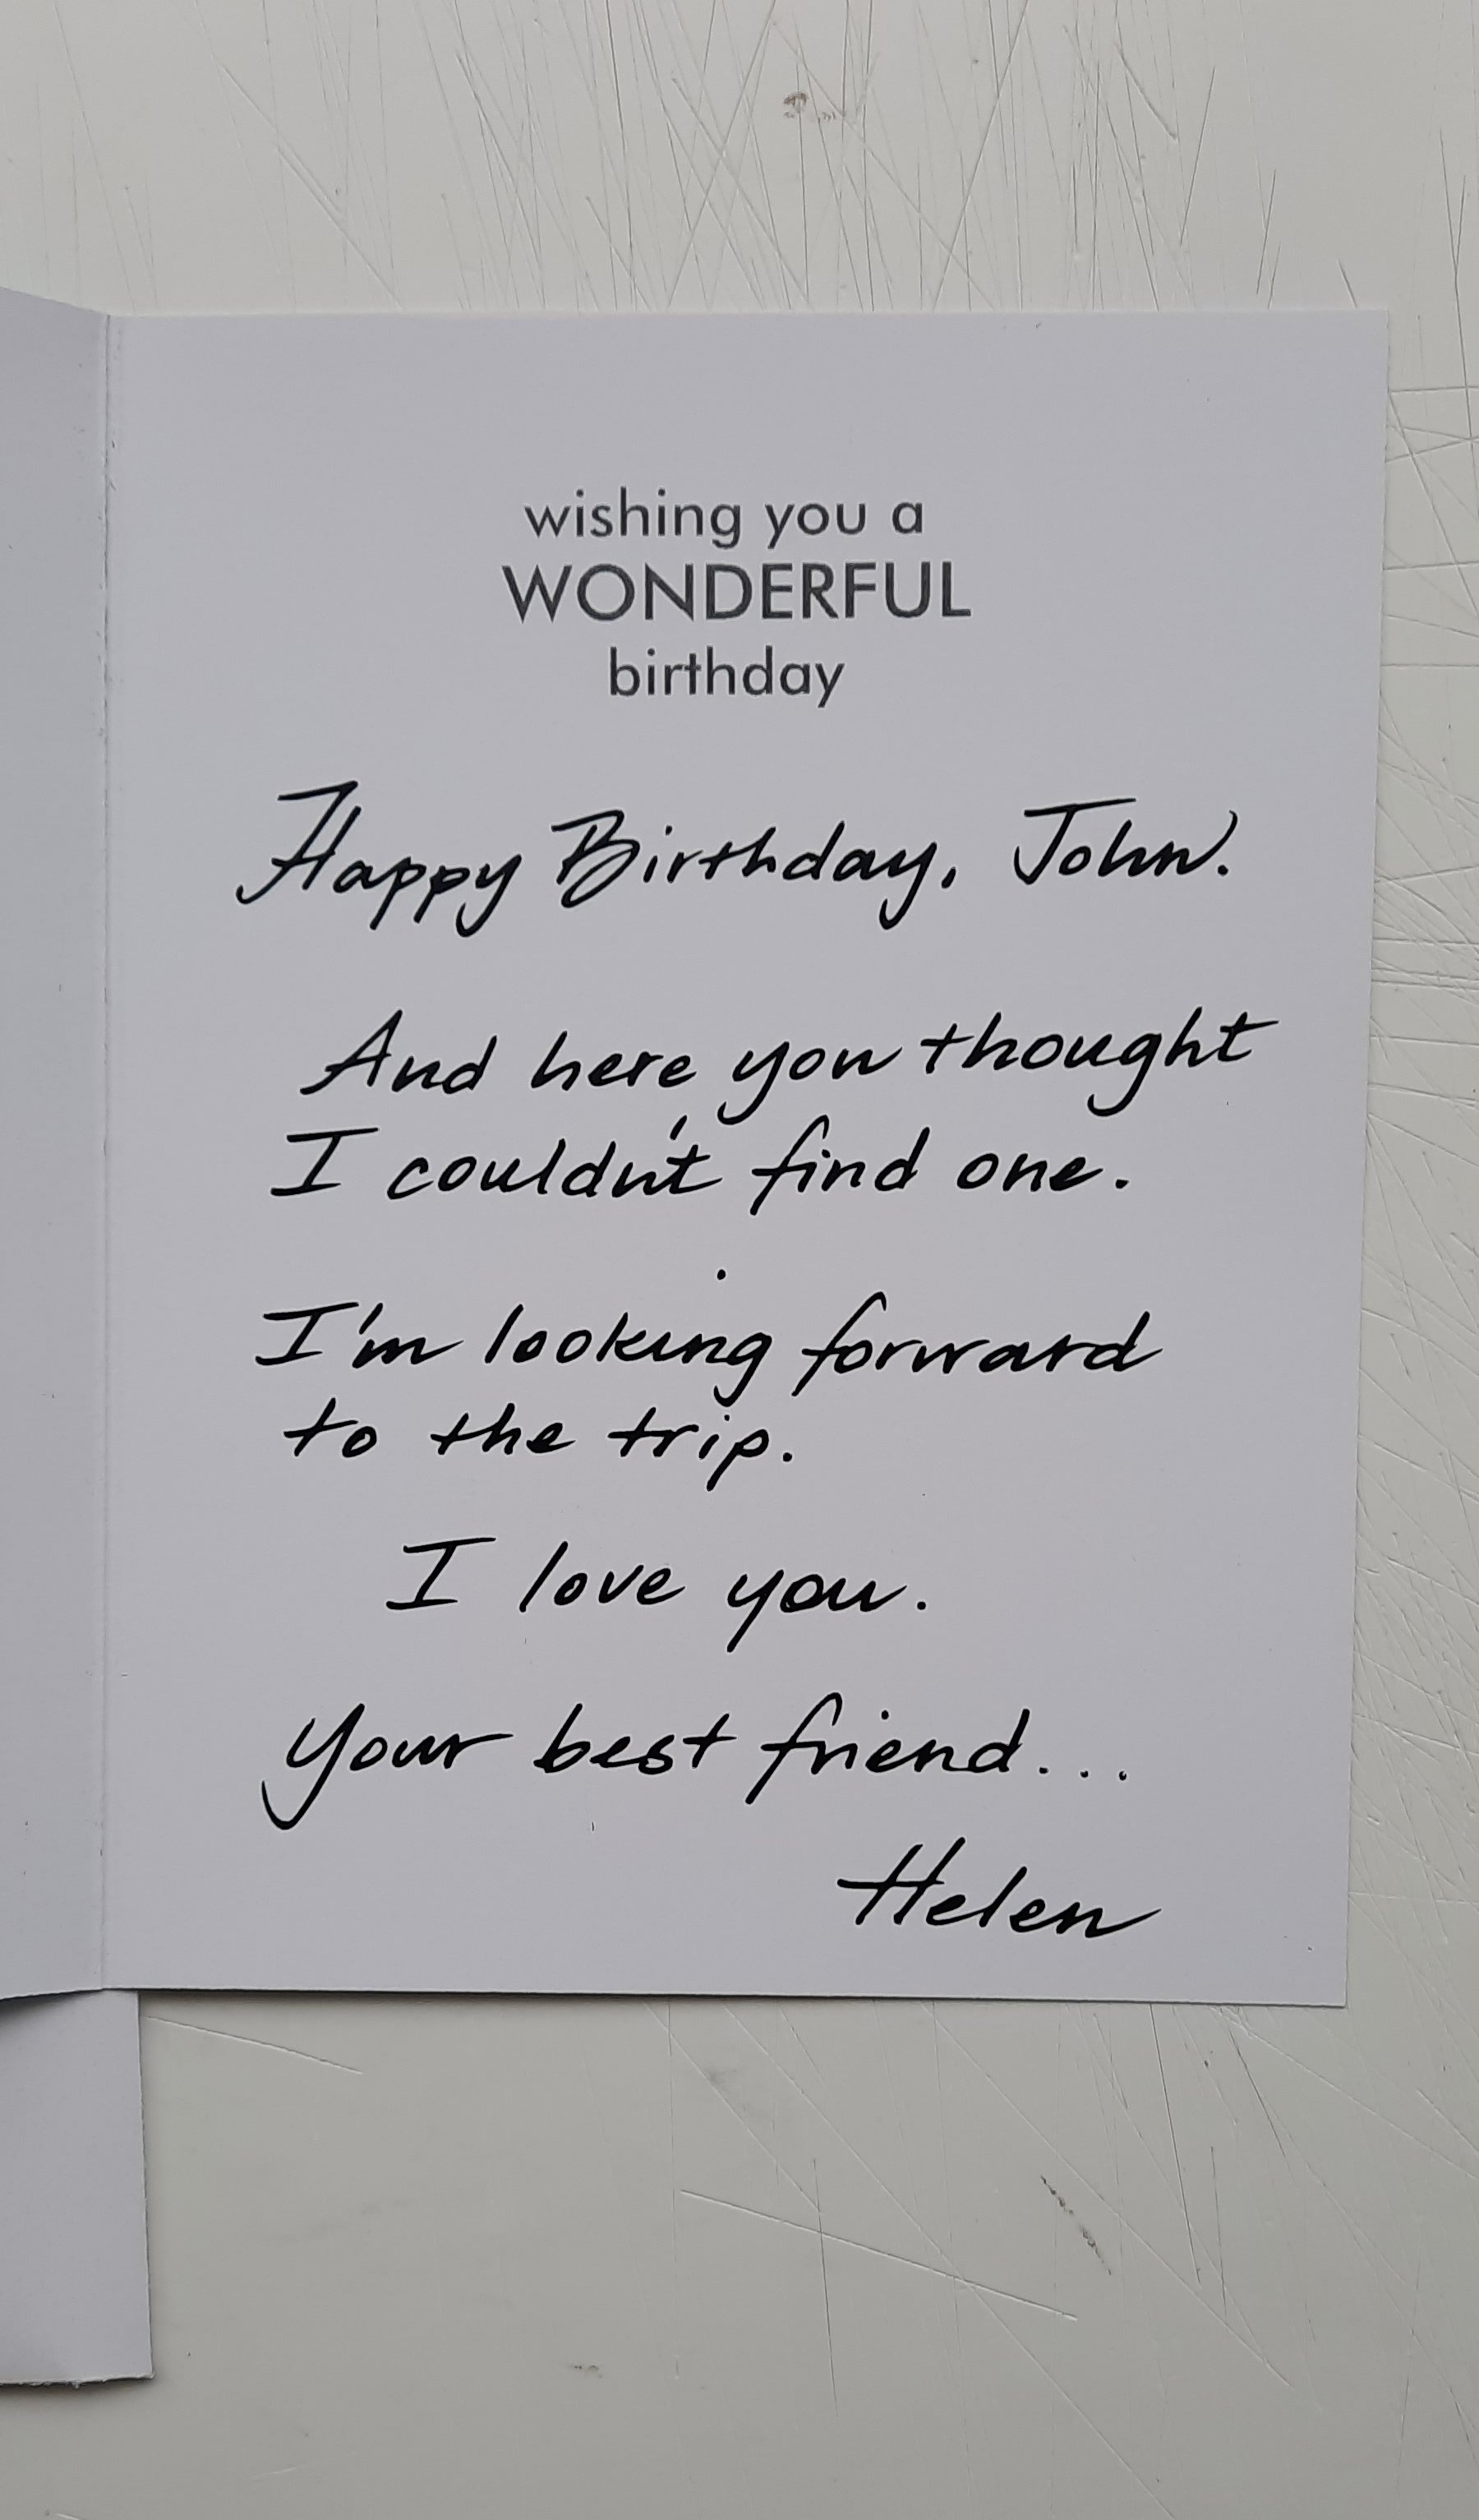 wishing you a
WONDERFUL
birthday
Happy Birthday, John.
And here you thought
I couldn't find one.
I'm looking forward
to the trip.
I love you.
Your best friend...
Helen